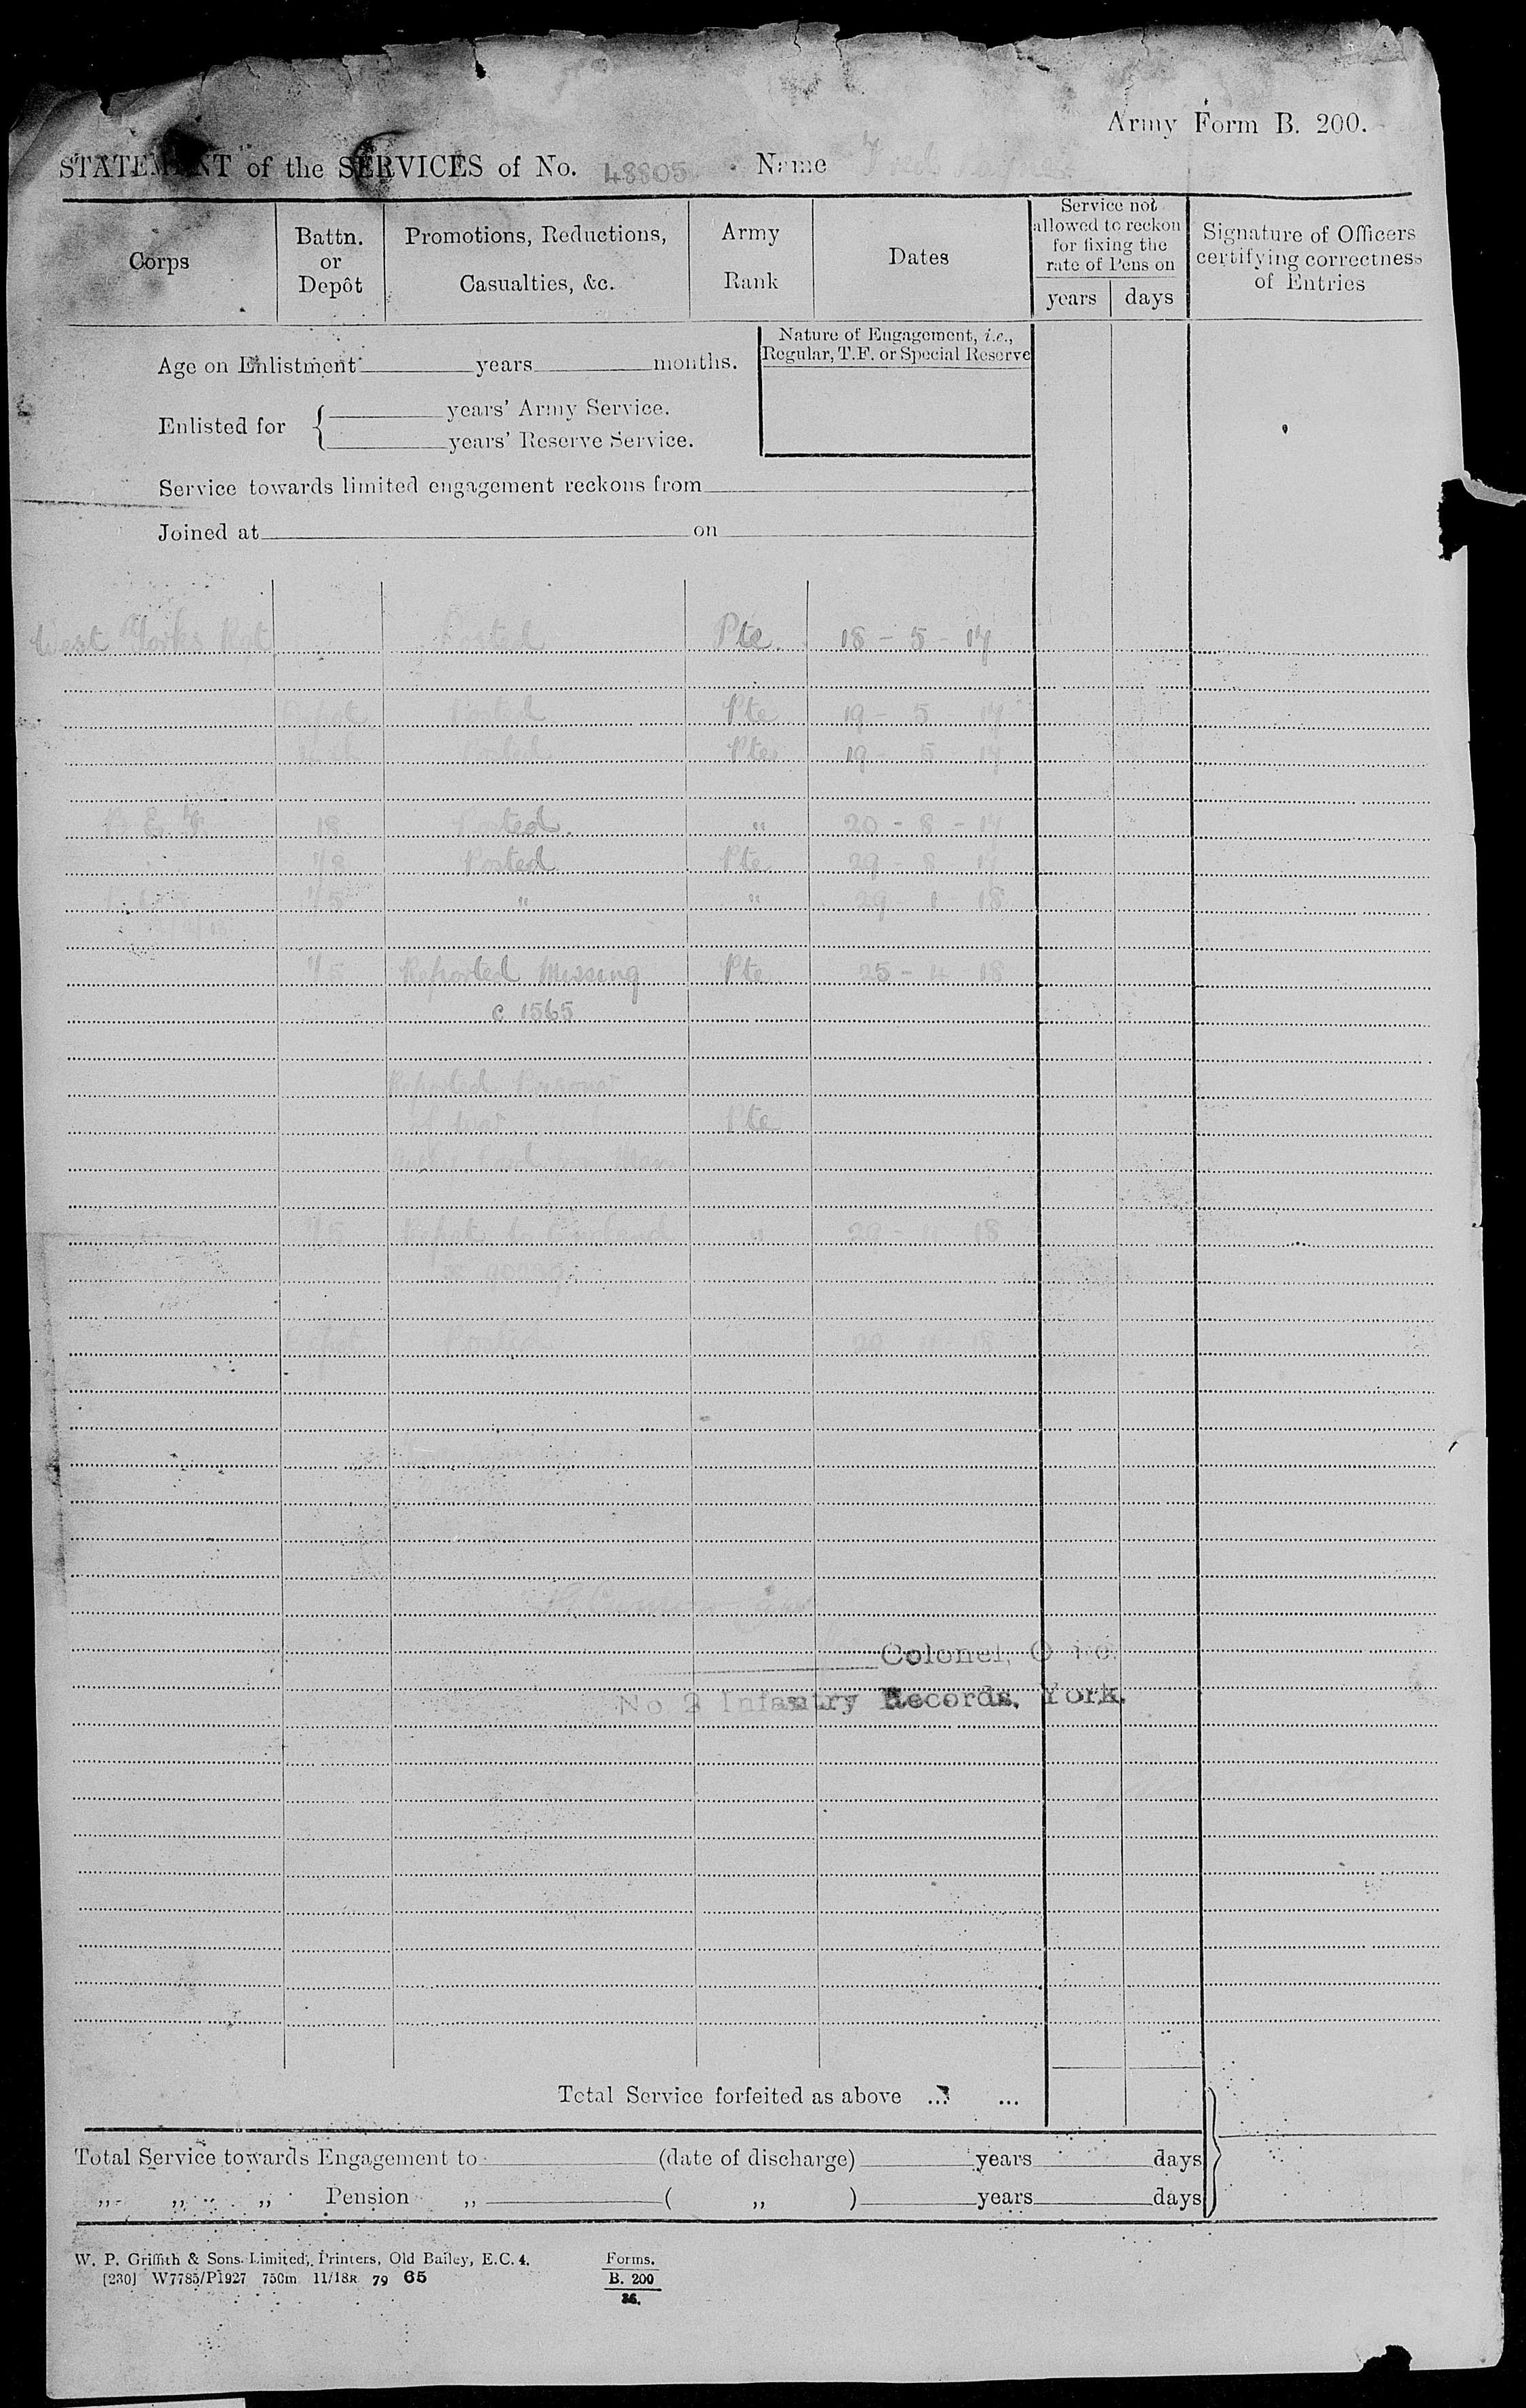 Army Form B. 200.
STATEMENT of the SERVICES of No. 48805 Name Fred
Corps
Battn. or Depôt
Promotions, Reductions, Casualties, &c.
Army Rank
Dates
Service not allowed to reckon for fixing the rate of Pension
years days
Signature of Officers certifying correctness of Entries
Age on Enlistment years months.
Nature of Engagement, i.e., Regular, T.F. or Special Reserve
Enlisted for { years' Army Service.
years' Reserve Service.
Service towards limited engagement reckons from
Joined at on
West Yorks Rgt Posted Pte. 18 - 5 - 17
Depot Posted Pte 19 - 5 - 17
Posted Pte 19 - 5 - 17
B. E. F. 18 Posted. " 20 - 8 - 17
1/8 Posted Pte 29 - 8 17
1/5 " " 29 - 1 - 18
1/5 Reported Missing Pte 25 - 4 18
c 1565
Reported Prisoner
of War Pte
1/5 Repat to England " 29 - 11 18
Depot Posted 29 11 - 18
Colonel, O i/c.
No 2 Infantry Records, York.
Total Service forfeited as above ... ...
Total Service towards Engagement to (date of discharge) years days
,, ,, ,, Pension ,, ( ,, ) years days
W. P. Griffith & Sons Limited, Printers, Old Bailey, E.C. 4.
[230] W7785/P1927 750m 11/18R 79 65
Forms.
B. 200
36.